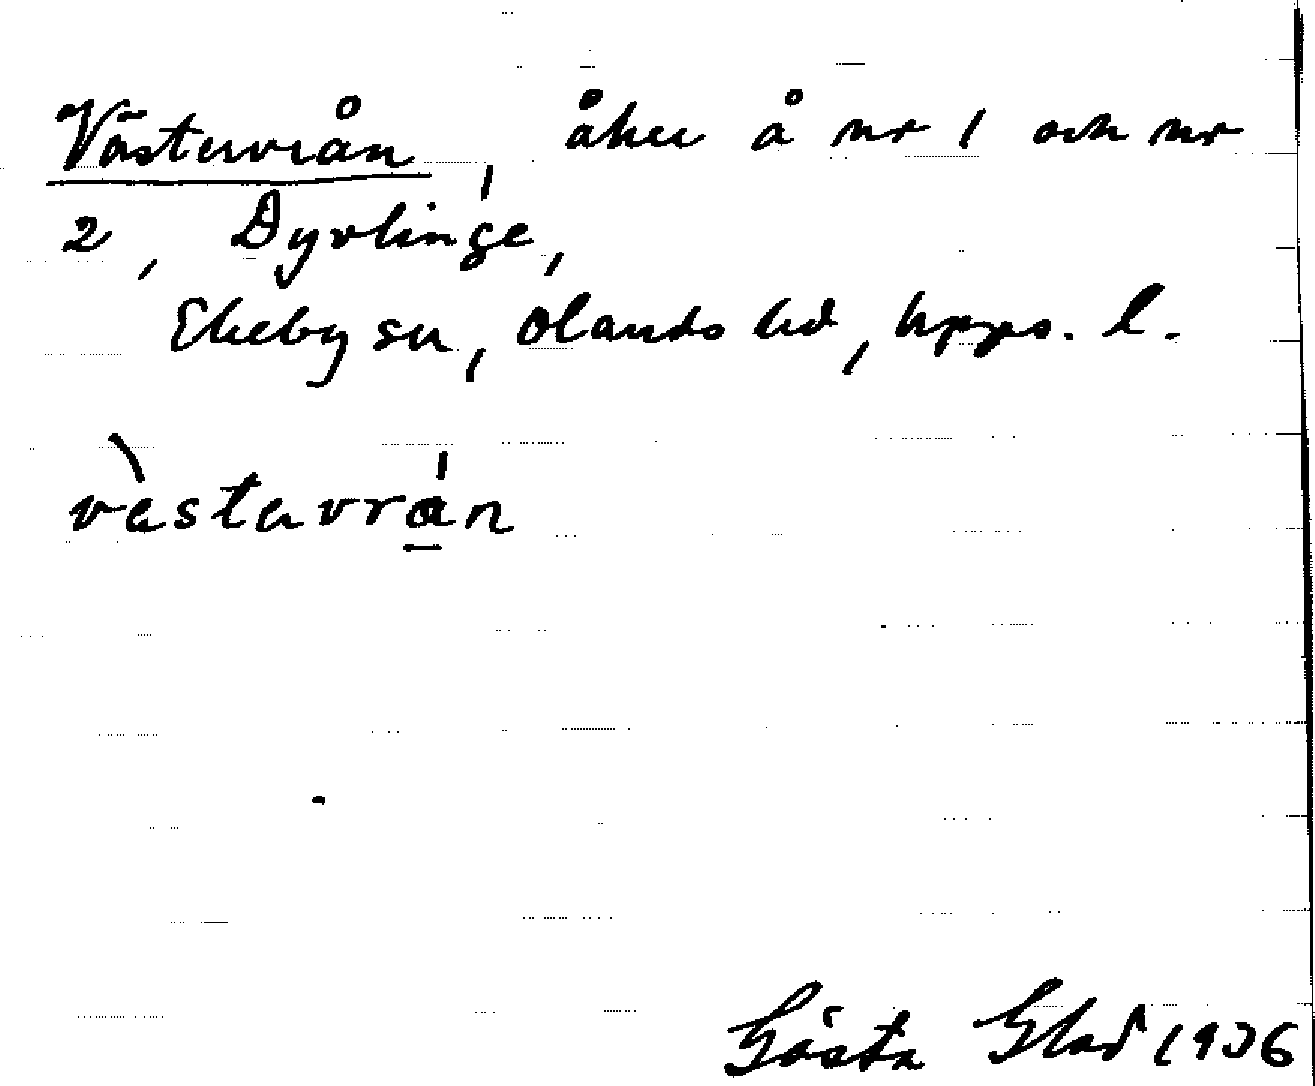 Västervrån, åker å nr 1 och nr
2, Dyvlinge,
Ekeby sn, Olands hd, Upps. l.
vàstavrán
Gösta Glad 1936